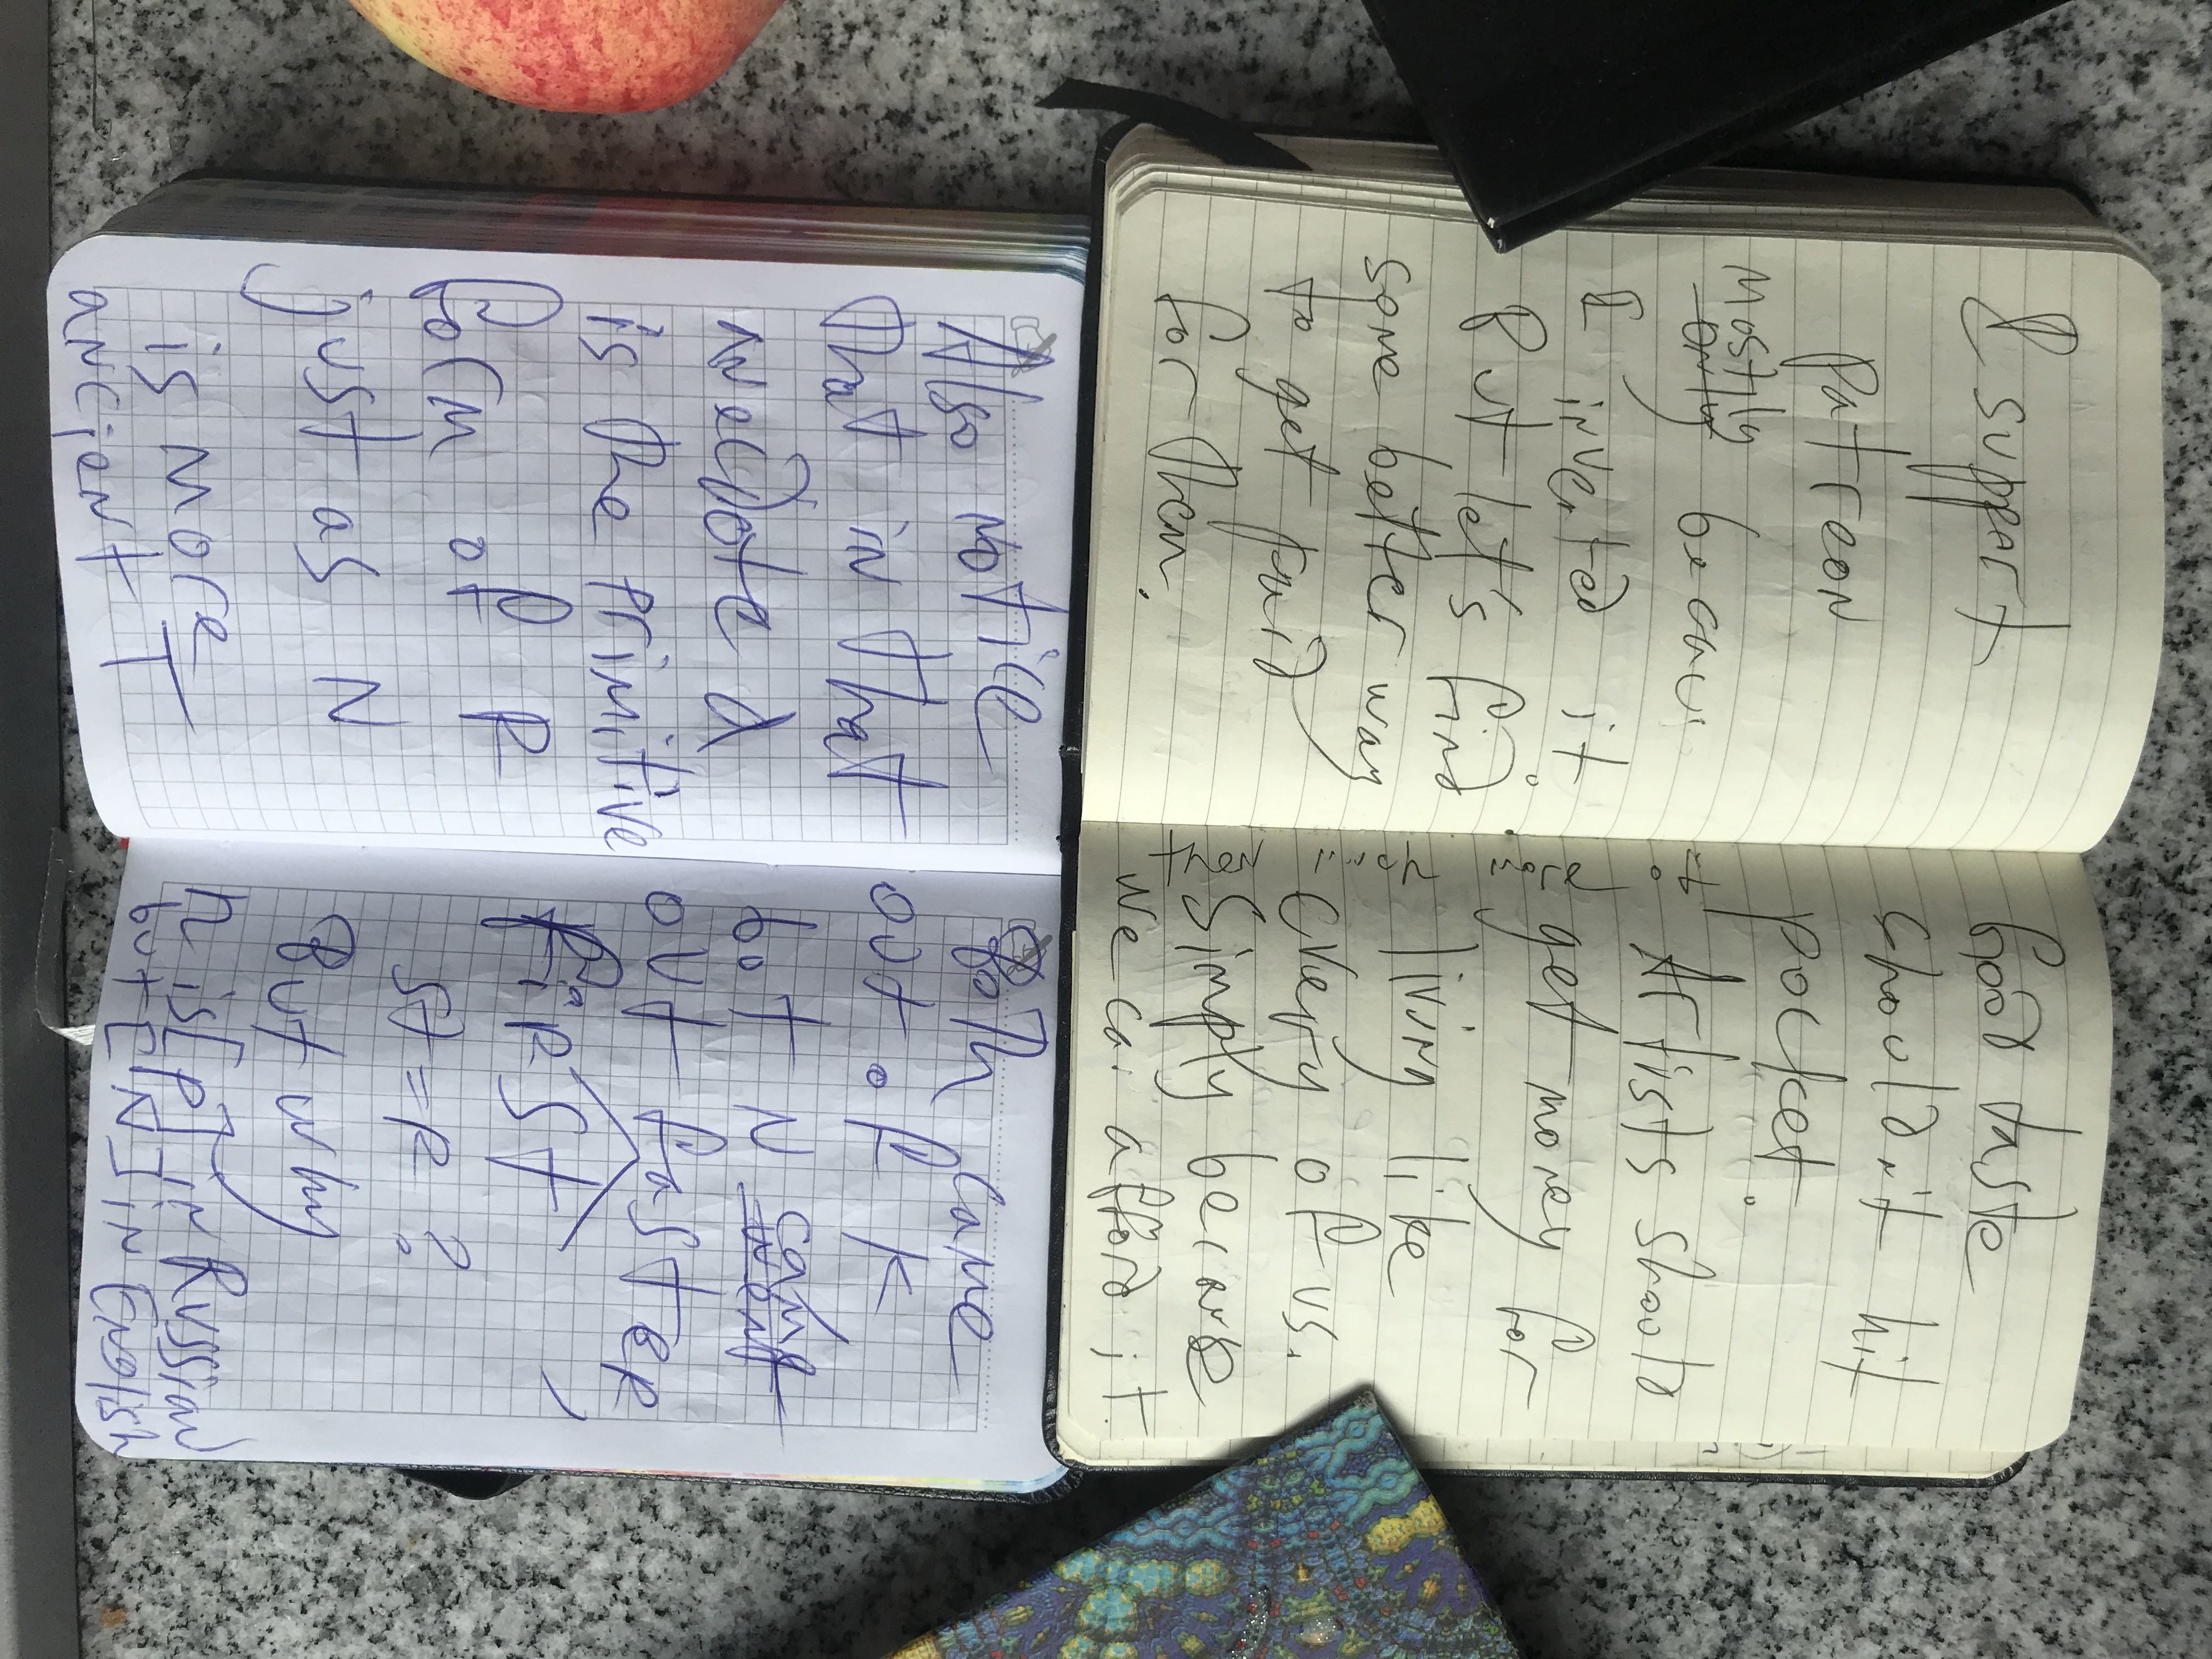 I support
Patreon
mostly
only because
I inverted it
But let's find
some better way
to get fund
for them.
Good taste
should n't hit
pocket.
Artists should
get money for
living like
every of us.
Simply because
we can afford it
Also notice
that in that
necdote d
is the primitive
form of R
just as N
is more
ancient
Both came
out of K
but N can't
out faster
first,
St = R?
But why
n is [P] in Russian
but [N] in English